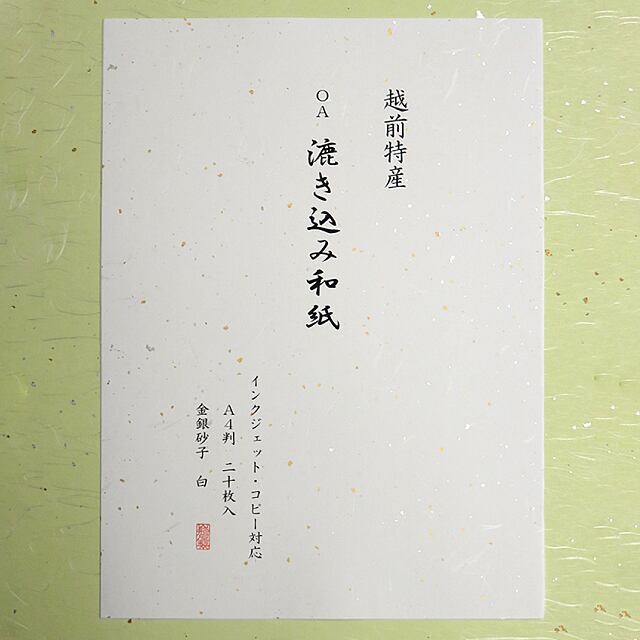 越前特産
OA 漉き込み和紙
インクジェット・コピー対応
A4判 二十枚入
金銀砂子 白